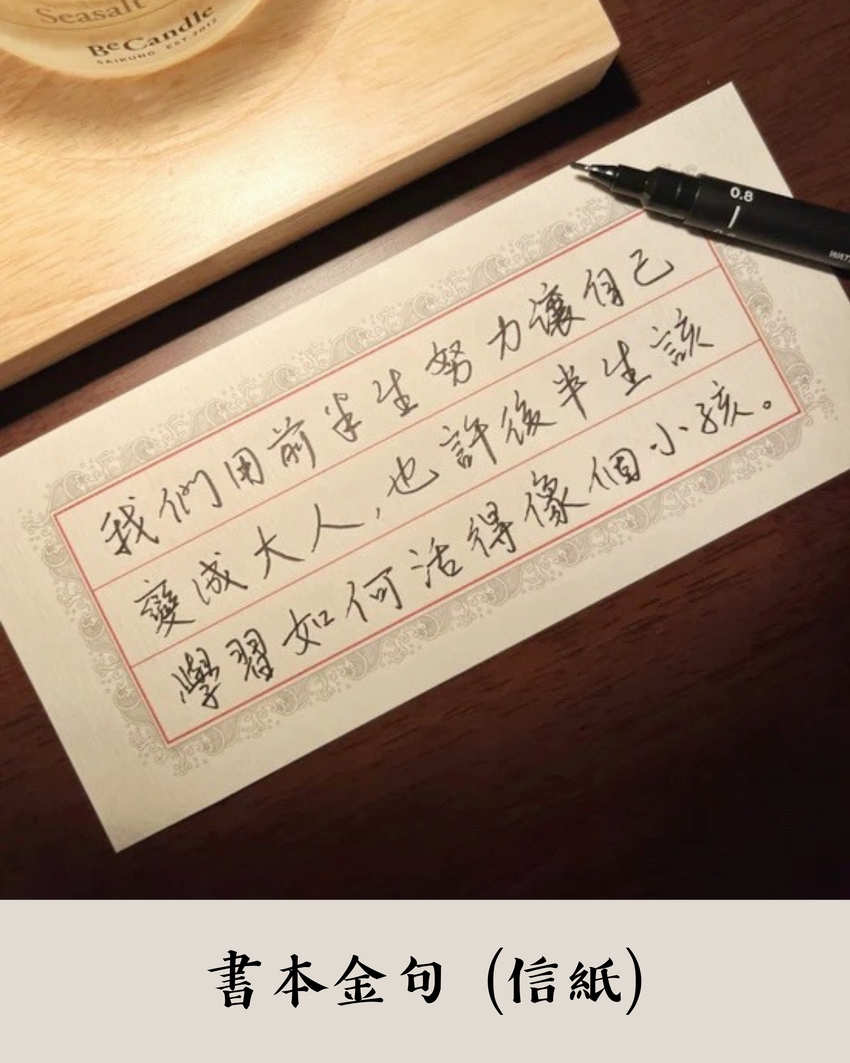 Seasalt
BeCandle
SAIKUNG EST.2017
0.8
我們用前半生努力讓自己
變成大人，也許後半生該
學習如何活得像個小孩。
書本金句（信紙）